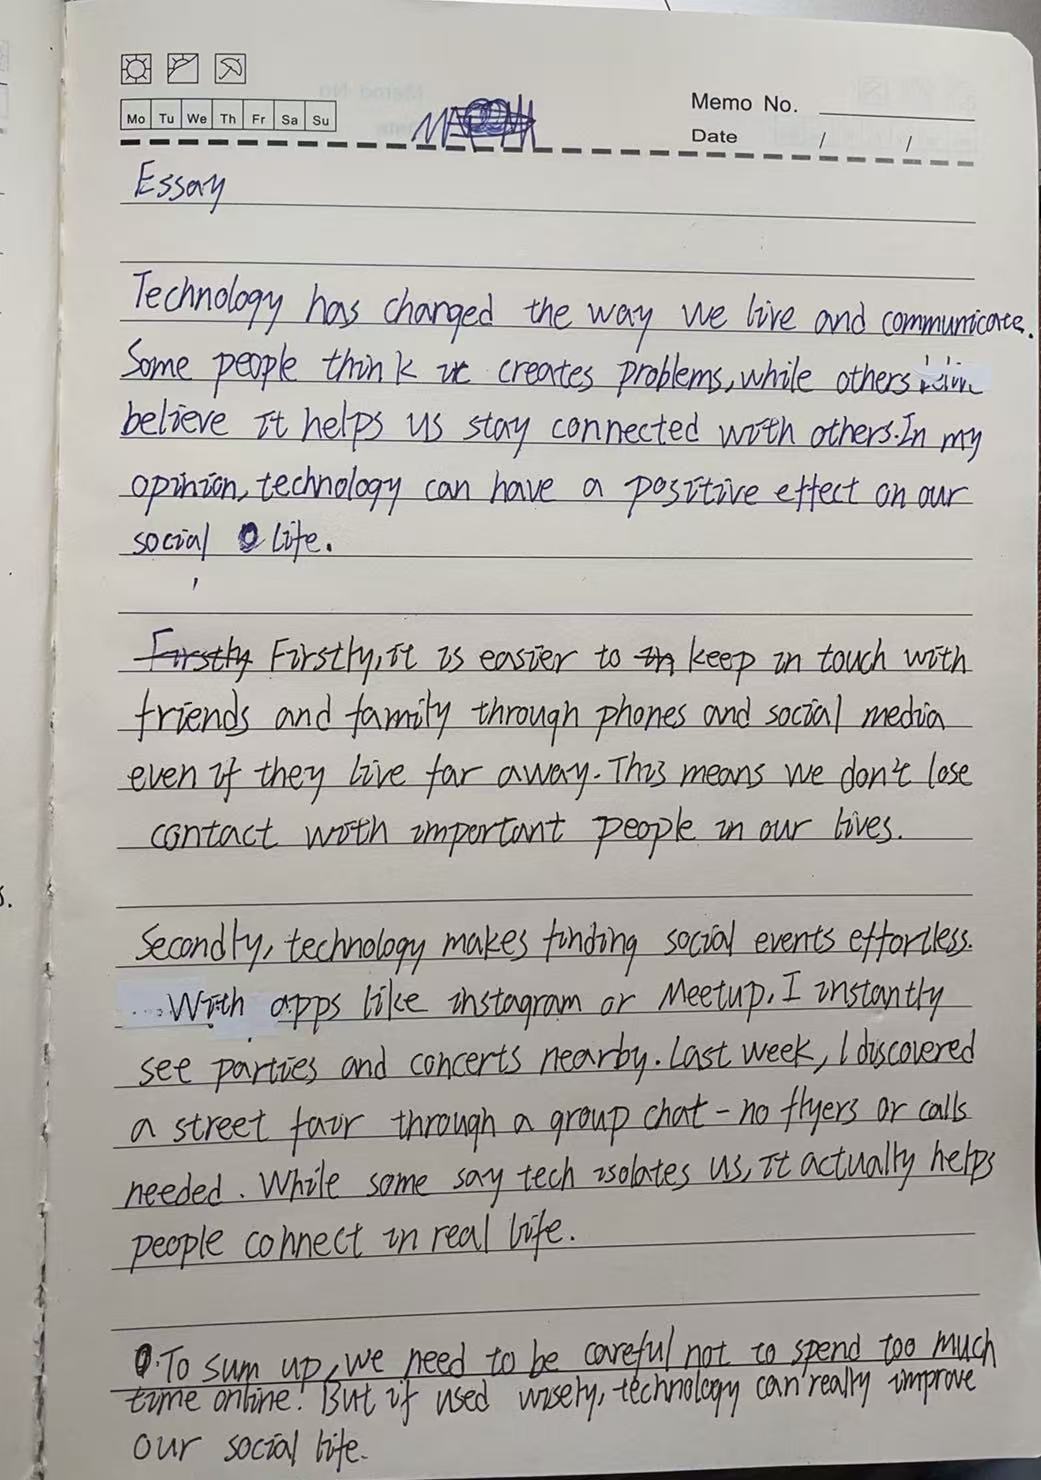 Mo Tu We Th Fr Sa Su
Memo No.
Date / /
Essay
Technology has changed the way we live and communicate.
Some people think it creates problems, while others
believe it helps us stay connected with others. In my
opinion, technology can have a positive effect on our
social life.
Firstly Firstly, it is easier to keep in touch with
friends and family through phones and social media
even if they live far away. This means we don't lose
contact with important people in our lives.
Secondly, technology makes finding social events effortless.
With apps like instagram or Meetup, I instantly
see parties and concerts nearby. Last week, I discovered
a street fair through a group chat - no flyers or calls
needed. While some say tech isolates us, it actually helps
people connect in real life.
To sum up, we need to be careful not to spend too much
time online. But if used wisely, technology can really improve
our social life.